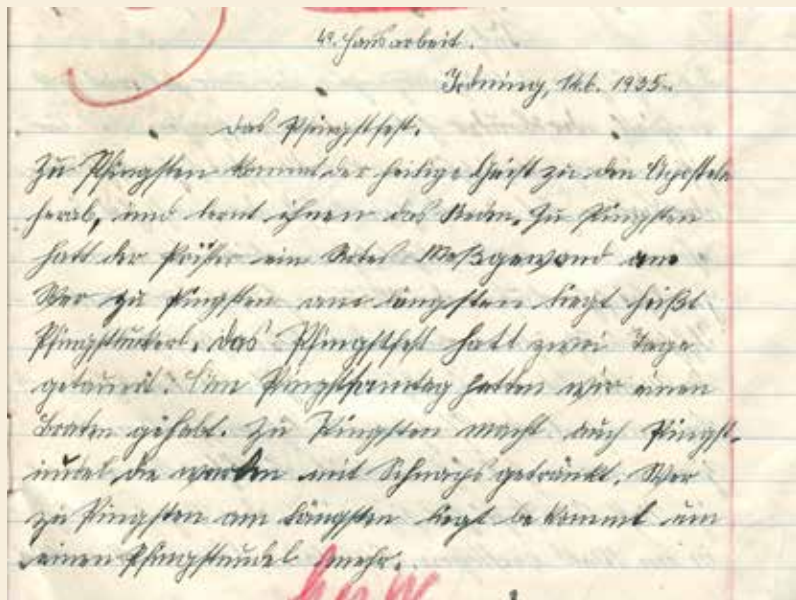 49. Hausarbeit.
Irdning, 14.6. 1935.
Das Pfingstfest.
Zu Pfingsten kommt der heilige Geist zu den Aposteln
herab, und lernt ihnen das Reden. Zu Pingsten
hatt der Prister ein Rotes Meßgewand an
Wer zu Pingsten am längsten liegt heißt
Pfingstluckerl. Das Pfingstfest hatt zwei Tage
getauert. Am Pingstsamtag hatten wir einen
Braten gehabt. Zu Pingsten macht auch Pingst-
nudel die warden mit Schnaps getränkt. Wer
zu Pingsten am Längsten liegt bekommt um
einen Pfingstnudel mehr.